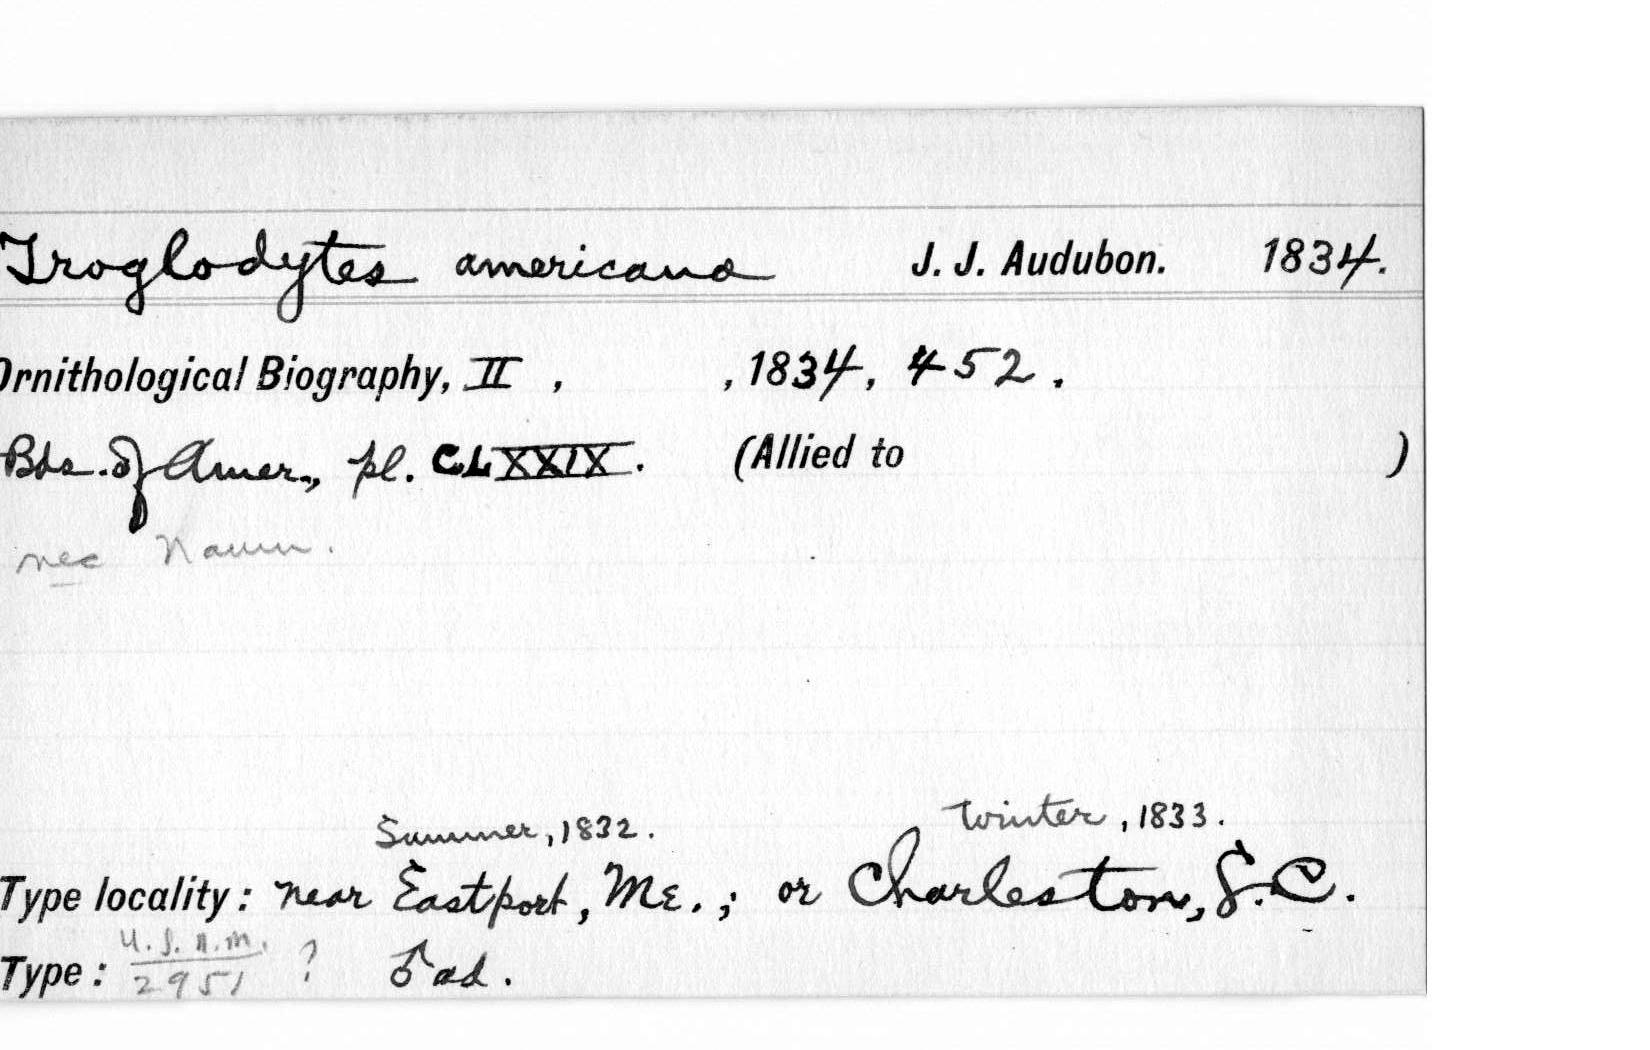 Troglodytes americana J. J. Audubon. 1834.
Ornithological Biography, II , , 1834, 452.
Bds. of Amer., pl. CLXXIX. (Allied to )
nec Naum.
Summer, 1832. Winter, 1833.
Type locality: near Eastport, Me.; or Charleston, S.C.
U.S.N.M.
Type: 2951 ? ♂ ad.